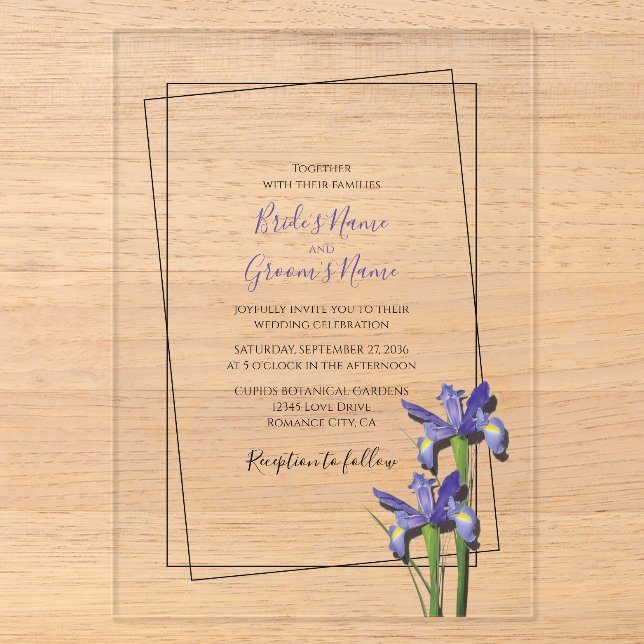 Together
with their families
Bride's Name
and
Groom's Name
joyfully invite you to their
wedding celebration
Saturday, September 27, 2036
at 5 o'clock in the afternoon
Cupids Botanical Gardens
12345 Love Drive
Romance City, CA
Reception to follow